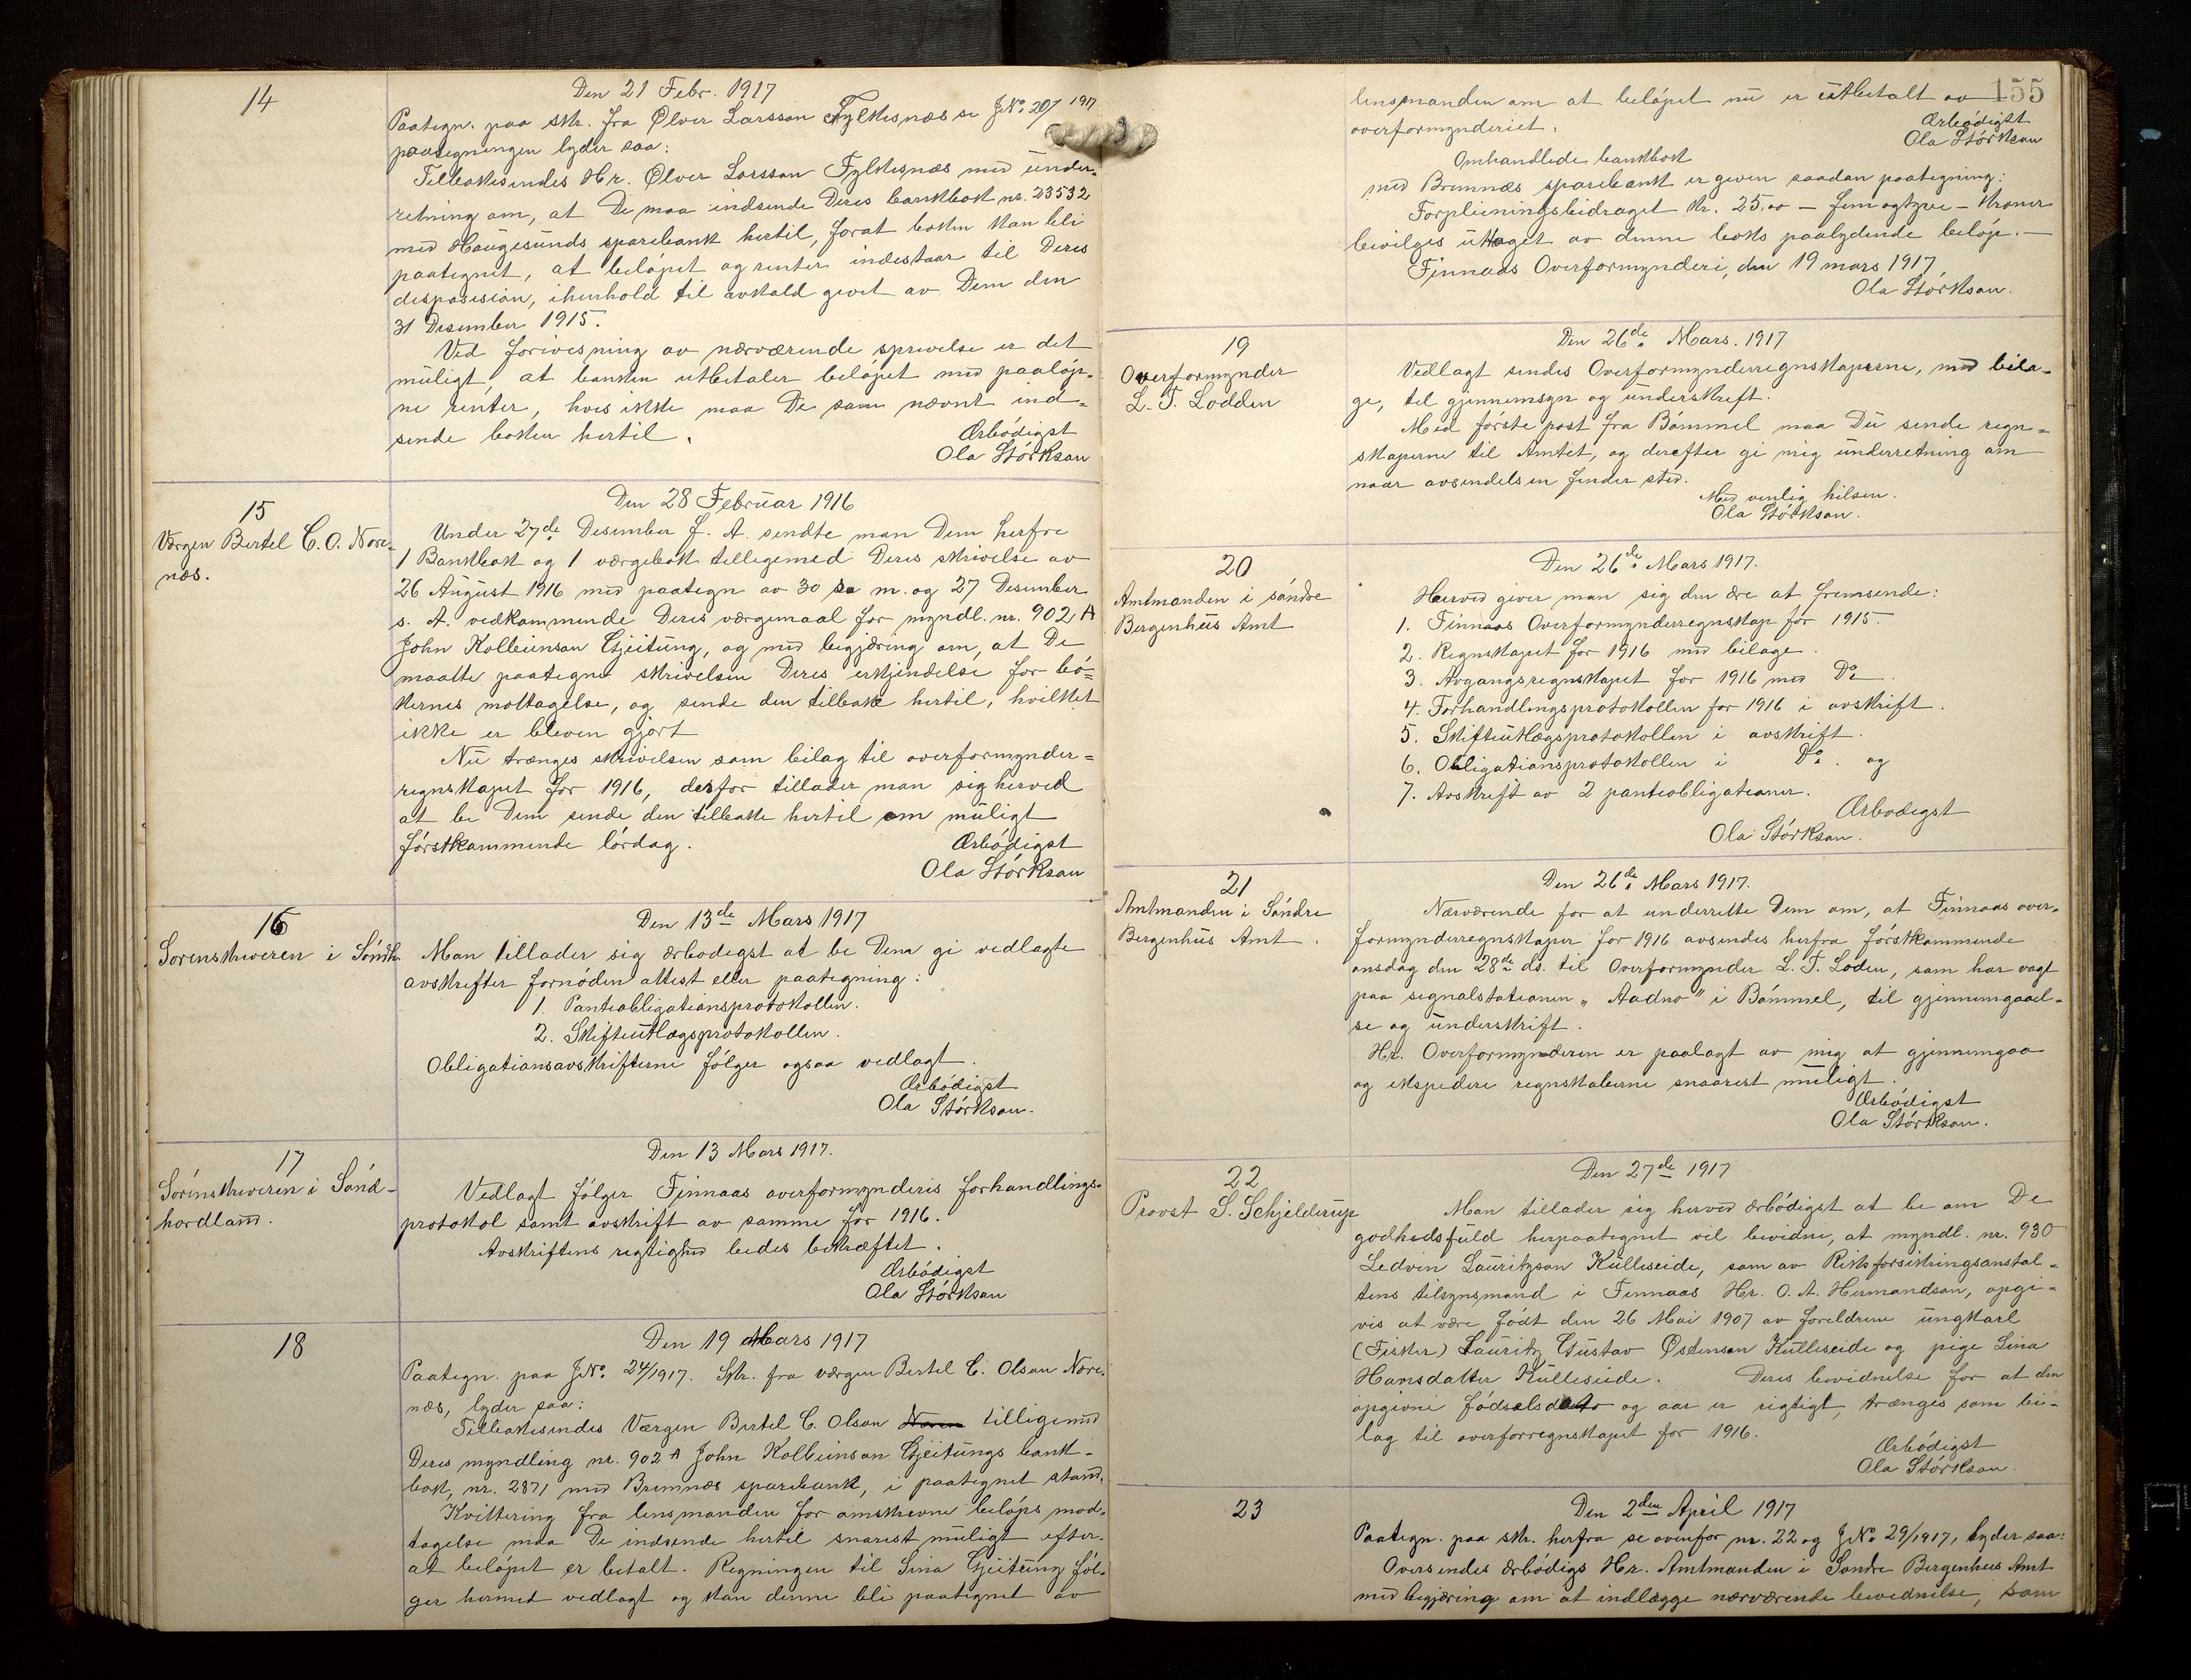 14
Den 21 Febr. 1917
Paategn. paa skr. fra Ølver Larsson Fylkesnæs se J.No. 20/1917
paategningen lyder saa:
Tilbakesendes Hr. Ølver Larsson Fylkesnæs med under-
retning om, at De maa indsende Deres bankbok nr. 23532
med Haugesunds sparebank hertil, forat boken kan bli
paategnet, at beløpet og renter indestaar til Deres
desposision, ihenhold til avkald givet av Dem den
31 Desember 1915.
Ved forivesning av nærværende skrivelse er det
muligt, at banken utbetaler beløpet med paaløp-
ne renter, hvis ikke maa De som nævnt ind-
sende boken hertil.
Ærbødigst
Ola Størkson
15
Værgen Bertel C. O. Nore-
næs.
Den 28 Februar 1916
Under 27de Desember f. A. sendte man Dem herfra
1 Bankbok og 1 værgebok tillegemed Deres skrivelse av
26 August 1916 med paategn av 30 sa m. og 27 Desember
s. A. vedkommende Deres værgemaal for myndl. nr. 902 A
John Kolbeinson Gjeitung, og med begjæring om, at De
maatte paategne skrivelsen Deres erkjendelse for bø-
kernes mottagelse, og sende den tilbake hertil, hvilket
ikke er bleven gjort
Nu trænges skrivelsen som bilag til overformynder-
regnskapet for 1916, derfor tillader man sig herved
at be Dem sende den tilbake hertil om muligt
førstkommende lørdag.
Ærbødigst
Ola Størkson
16
Sorenskriveren i Søndh.
Den 13de Mars 1917
Man tillader sig ærbødigst at be Dem gi vedlagte
avskrifter fornøden attest eller paategning:
1. Panteobligationsprotokollen.
2. Skifteutlægsprotokollen.
Obligationsavskrifterne følger ogsaa vedlagt.
Ærbødigst
Ola Størkson.
17
Sorenskriveren i Sønd-
hordland.
Den 13 Mars 1917.
Vedlagt følger Finnaas overformynderis forhandlings-
protokol samt avskrift av samme for 1916.
Avskriftens rigtighed bedes bekræftet.
Ærbødigst
Ola Størkson
18
Den 19 Mars 1917
Paategn. paa J.No. 24/1917. Skr. fra værgen Bertel C. Olson Nore-
næs, lyder saa:
Tilbakesendes Værgen Bertel C. Olson tilligemed
Deres myndling nr. 902 A John Kolbeinson Gjeitungs bank-
bok, nr. 2871 med Bremnæs sparebank, i paategnet stand.
Kvittering fra lensmanden for omskrevne beløps mod-
tagelse maa De indsende hertil snarest muligt efter-
at beløpet er betalt. Regningen til Sina Gjeitung føl-
ger hermed vedlagt og kan denne bli paategnet av
155
lensmanden om at beløpet nu er utbetalt av
overformynderiet.
Ærbødigst
Ola Størkson
Omhandlede bankbok
med Bremnæs sparebank er given saadan paategning:
Forpleiningsbidraget kr. 25.00 – fem og tyve – kroner
bevilges uttaget av denne boks paalydende beløp. –
Finnaas Overformynderi, den 19 mars 1917
Ola Størkson.
19
Overformynder
L. T. Lodden
Den 26de Mars. 1917
Vedlagt sendes Overformynderregnskaperne, med bila-
ge, til gjennemsyn og underskrift.
Med første post fra Bømmel maa Du sende regn-
skaperne til Amtet, og derefter gi mig underretning om
naar avsendelsen finder sted.
Med venlig hilsen.
Ola Størkson.
20
Amtmanden i søndre
Bergenhus Amt
Den 26de Mars 1917.
Herved giver man sig den ære at fremsende:
1. Finnaas Overformynderregnskap for 1915.
2. Regnskapet for 1916 med bilage.
3. Avgangsregnskapet for 1916 med Do.
4. Forhandlingsprotokollen for 1916 i avskrift.
5. Skifteutlægsprotokollen i avskrift.
6. Obligationsprotokollen i Do. og
7. Avskrift av 2 panteobligationer.
Ærbødigst
Ola Størkson.
21
Amtmanden i Søndre
Bergenhus Amt.
Den 26de Mars 1917.
Nærværende for at underrette Dem om, at Finnaas over-
formynderregnskaper for 1916 avsendes herfra førstkommende
onsdag den 28de ds. til Overformynder L. T. Loden, som har vagt
paa signalstationen „Aadno" i Bømmel, til gjennemgaael-
se og underskrift.
Hr. Overformynderen er paalagt av mig at gjennemgaa
og ekspedere regnskaberne snaarest muligt.
Ærbødigst
Ola Størkson.
22
Provst S. Schjelderup
Den 27de 1917
Man tillader sig herved ærbødigst at be om De
godhedsfuld herpaategnet vil bevidne, at myndl. nr. 930
Ledvin Lauritzson Kulleseide, som av Riksforsikringsanstal-
tens tilsynsmand i Finnaas Hr. O. A. Hermandson, opgi-
ves at være født den 26 Mai 1907 av foreldrene ungkarl
(Fisker) Lauritz Gustav Østenson Kulleseide og pige Lina
Hansdatter Kulleseide. Deres bevidnelse for at den
opgivne fødselsdato og aar er rigtigt, trænges som bi-
lag til overforregnskapet for 1916.
Ærbødigst
Ola Størkson.
23
Den 2den April 1917
Paategn. paa skr. herfra se ovenfor nr. 22 og J.No. 29/1917, lyder saa:
Oversendes ærbødigs Hr. Amtmanden i Søndre Bergenhus Amt
med begjæring om at indlægge nærværende bevidnelse, som